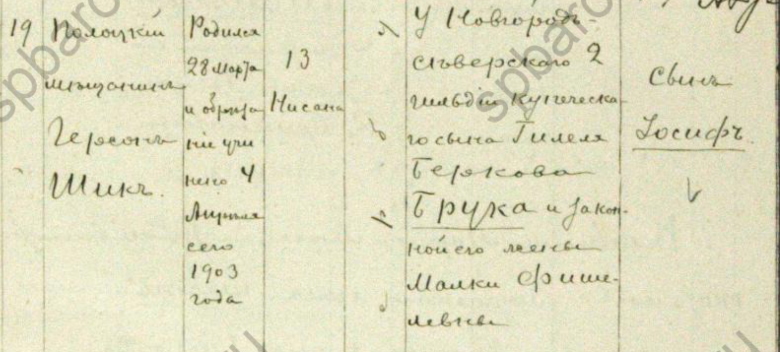 19
Полоцкій
мѣщанинъ
Герсонъ
Шикъ.
Родился
28 Марта
и обрѣза
ніе учи
нено 4
Апрѣля
сего
1903
года
13
Нисана
У Новгородъ-
Сѣверскаго 2
гильдіи купеческа-
го сына Гилеля
Беркова
Брука и закон-
ной его жены
Малки Фише-
левны
Сынъ
Іосифъ.